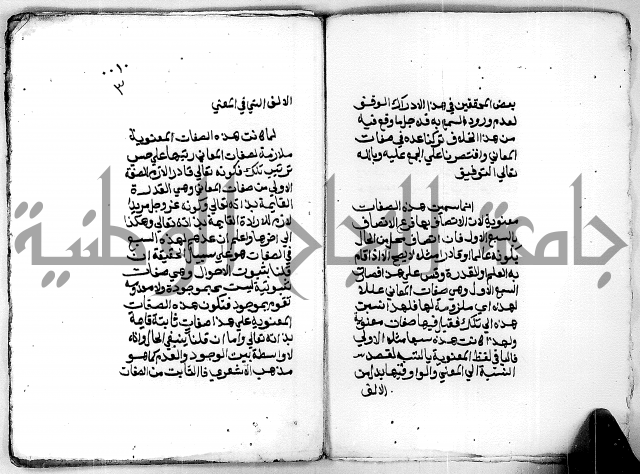 بعض المحققين في هذا الادراك الوقف
لعدم ورود السمع به فدجل ما وقع فيه
من هذا الخلاف تركنا عده في صفات
المعاني واقتصرنا علي المجمع عليه وبالله
تعالي التوفيق
انما سميت هذه الصفات
معنوية لان الاتصاف بها فرع الاتصاف
بالسبع الاول فان اتصاف محل من المحال
بكونه عالما وقادرا مثلا لا يصح الا اذا قام
به العلم والقدرة وقس علي هذا فصارت
السبع الاول وهي صفات المعاني عللا
لهذه اي ملزومة لها فلهذا نسبت
هذه الي تلك فقيل فيها صفات معنوية
ولهذا كانت هذه سبعا مثل الاولي
فاليا في لفظ المعنوية يا النسب لقصد
النسبة الي المعني والواو فيها بدل من
الالف
الالف التي في المعني
لما كانت هذه الصفات المعنوية
ملازمة لصفات المعاني رتبها علي حسب
ترتيب تلك فكونه تعالي قادرا لازم للصفة
الاولي من صفات المعاني وهي القدرة
القائمة بذاته تعالي وكونه عز وجل مريدا
لازم للارادة القائمة بذاته تعالي وهكذا
الي اخرها واعلم ان عدهم لهذه السبع
في الصفات هو علي سبيل الحقيقة ان
قلنا بثبوت الاحوال وهي صفات
ثبوتية ليست بموجودة ولا معدومة
تقوم بموجود فتكون هذه الصفات
المعنوية علي هذا صفات ثابتة قائمة
بذاته تعالي واما ان قلنا بنفي الحال وانه
لا واسطة بين الوجود والعدم كما هو
مذهب الاشعري فالثابت من الصفات
جامعة النجاح الوطنية